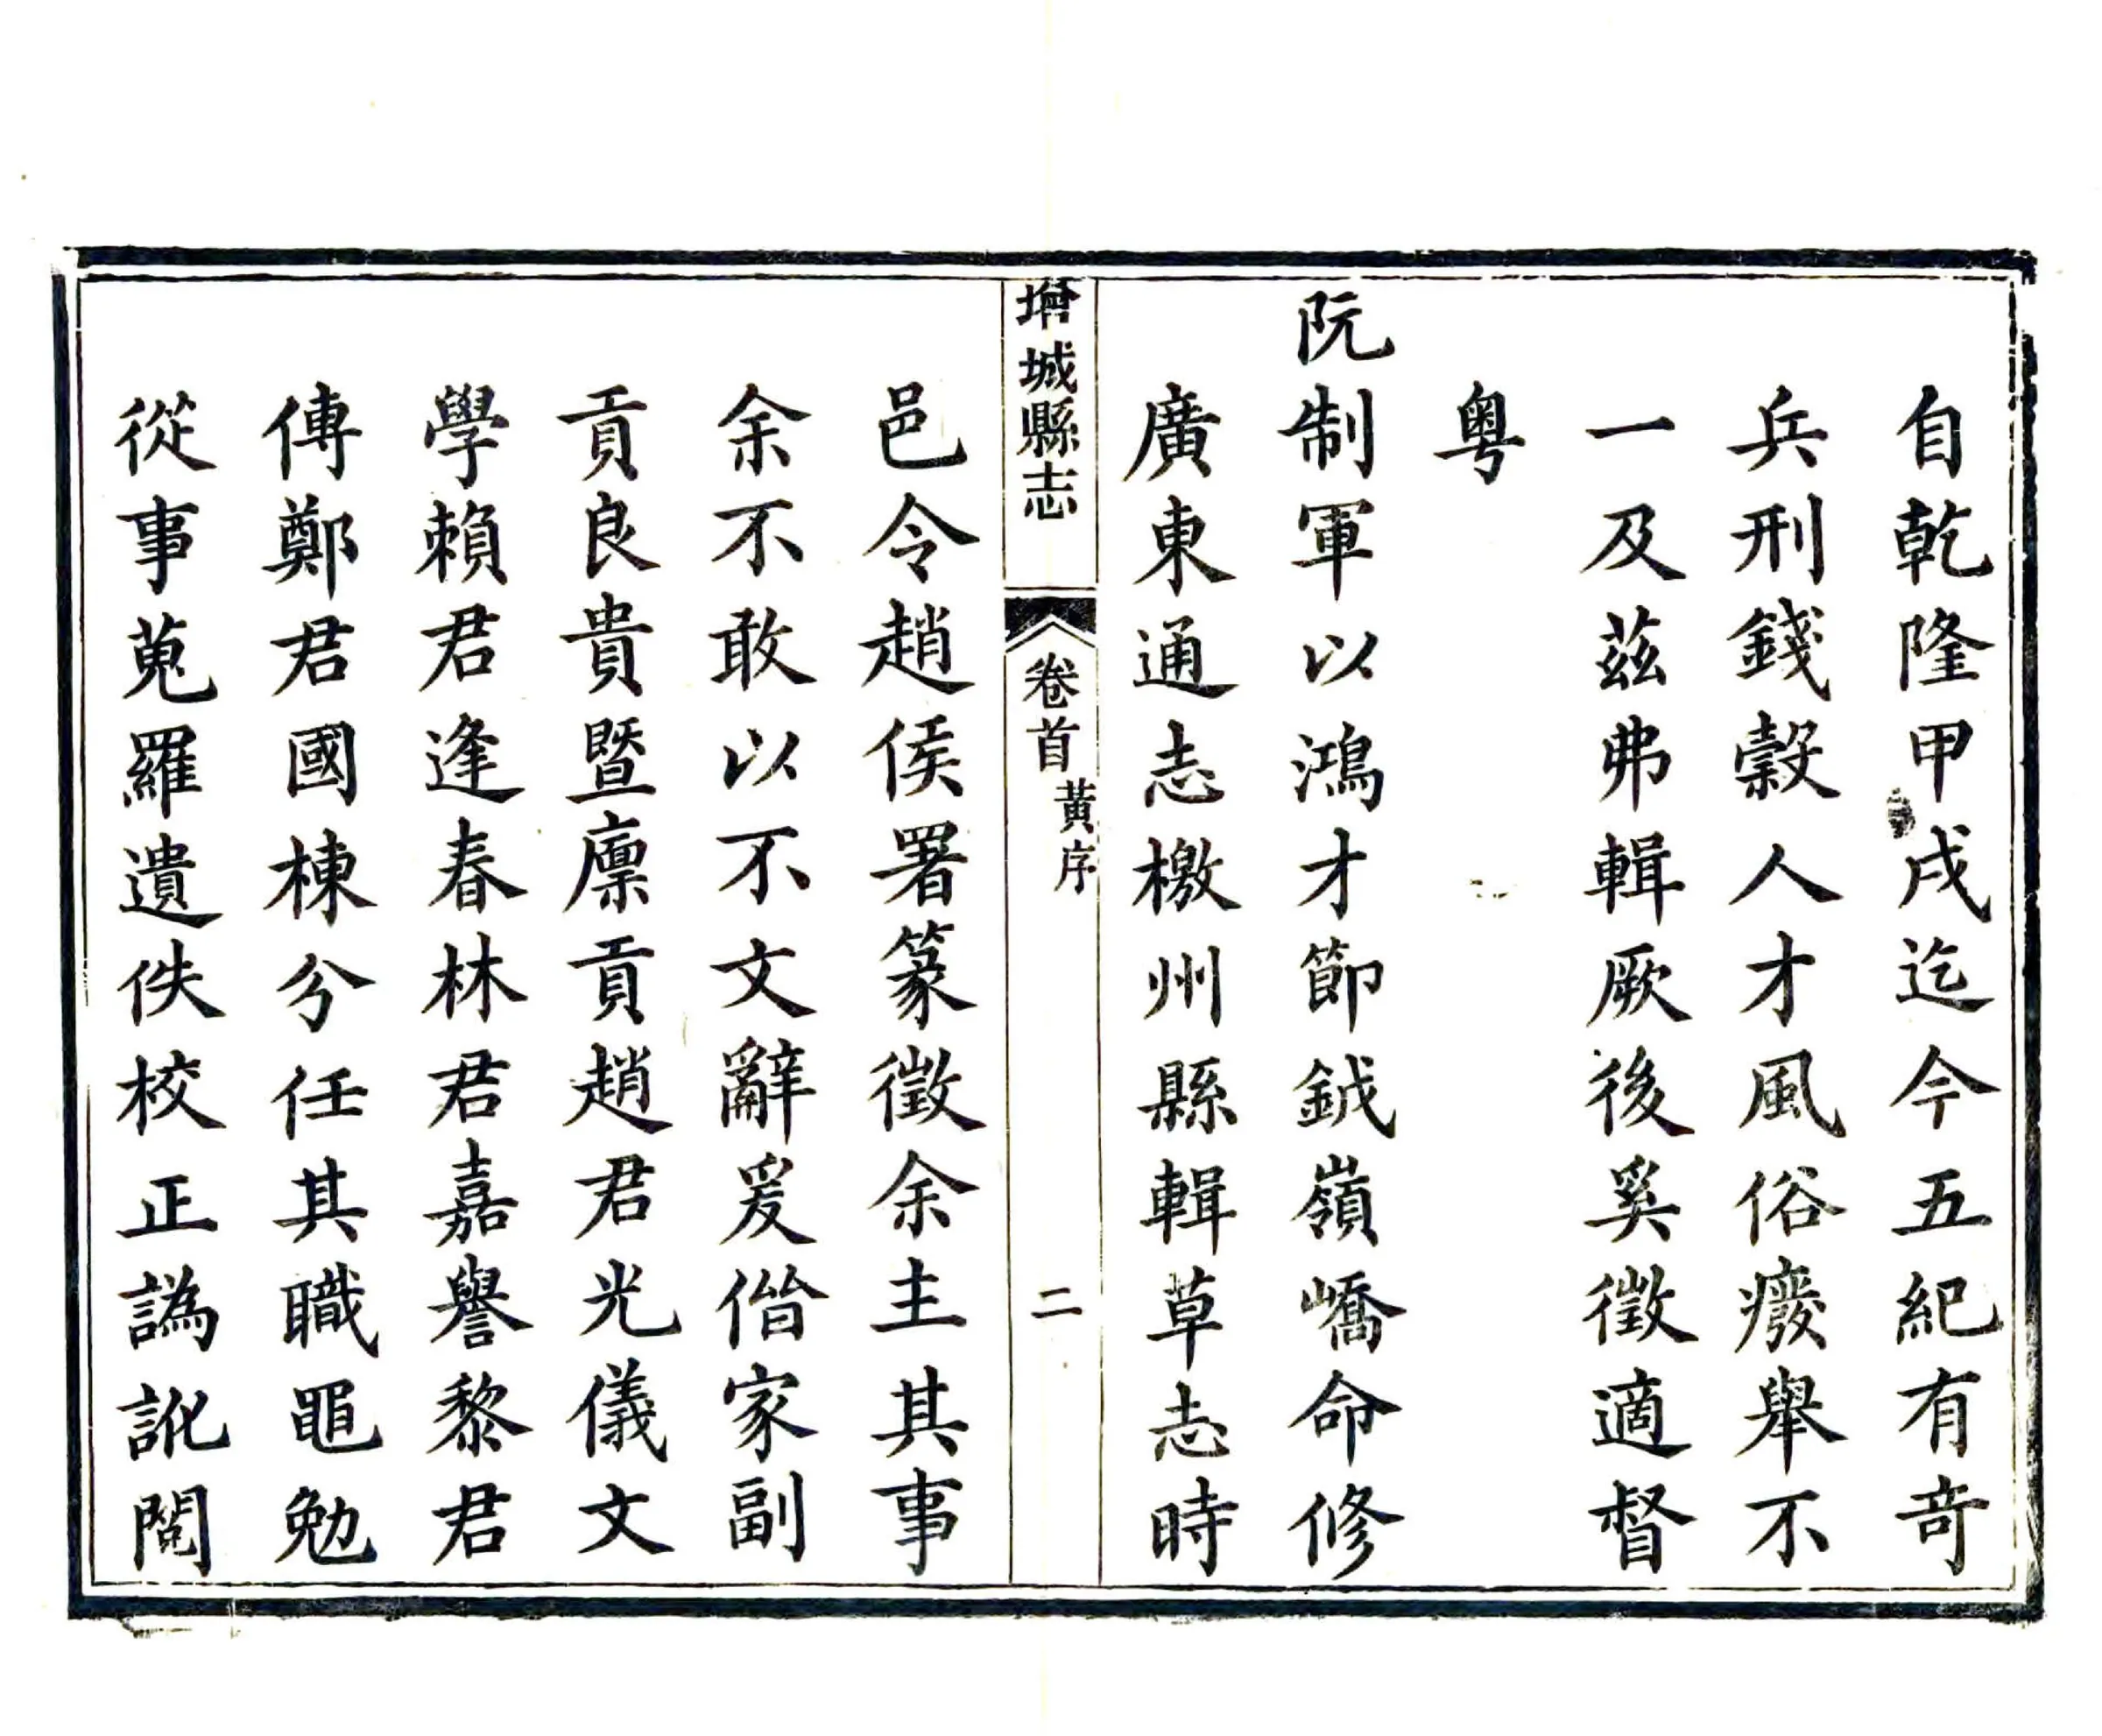 自乾隆甲戌迄今五紀有奇
兵刑錢穀人才風俗癈舉不
一及茲弗輯厥後奚徵適督
粵
阮制軍以鴻才節鉞嶺嶠命修
廣東通志檄州縣輯草志時
增城縣志
卷首
黃序
二
邑令趙侯署篆徵余主其事
余不敢以不文辭爰偕家副
貢良貴暨廩貢趙君光儀文
學賴君逢春林君嘉譽黎君
傳鄭君國棟分任其職黽勉
從事蒐羅遺佚校正譌訛閱